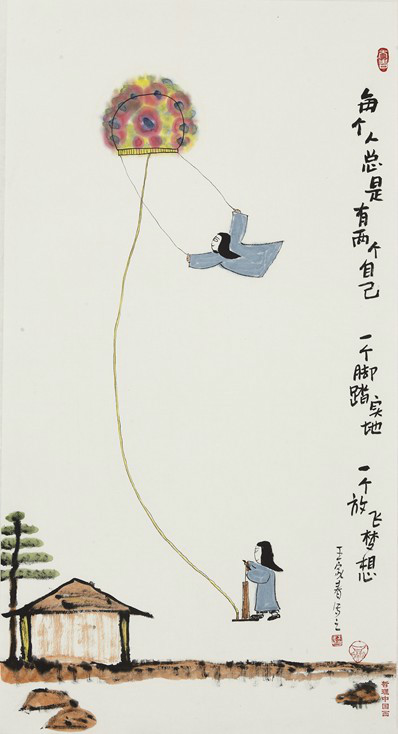 每个人总是有两个自己
一个脚踏实地
一个放飞梦想
王家春写之
哲理中国画